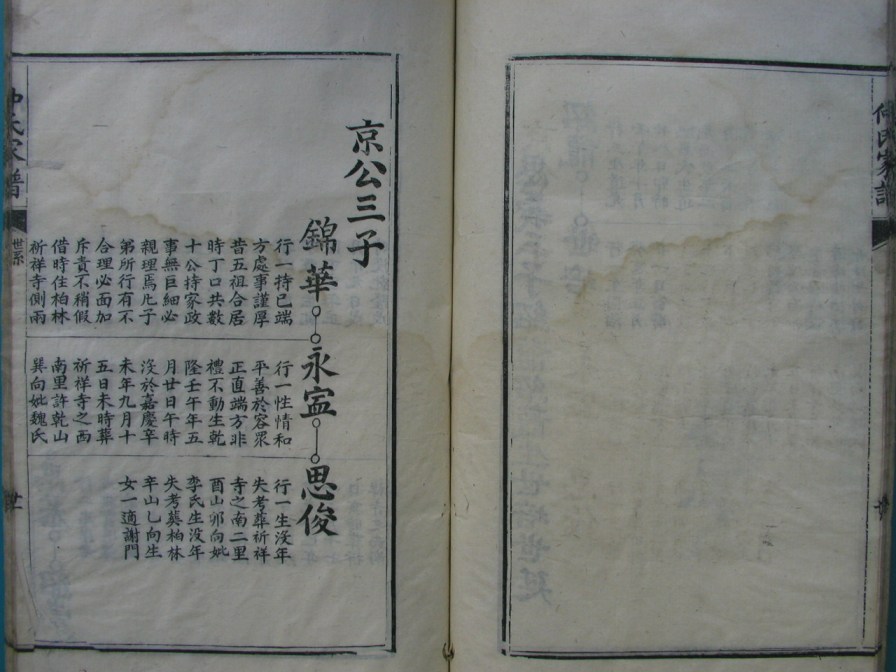 京公三子
錦華
永寍
思俊
行一持已端
方處事謹厚
昔五祖合居
時丁口共數
十公持家政
事無巨細必
親理焉凢子
弟所行有不
合理必面加
斥責不稍假
借時住柏林
祈祥寺側兩
行一性情和
平善於容眾
正直端方非
禮不動生乾
隆壬午年五
月廿日午時
沒於嘉慶辛
未年九月十
五日未時葬
祈祥寺之西
南里許乾山
巽向妣魏氏
行一生沒年
失考葬祈祥
寺之南二里
酉山卯向妣
李氏生沒年
失考葬柏林
辛山乙向生
女一適謝門
氏家譜
世系